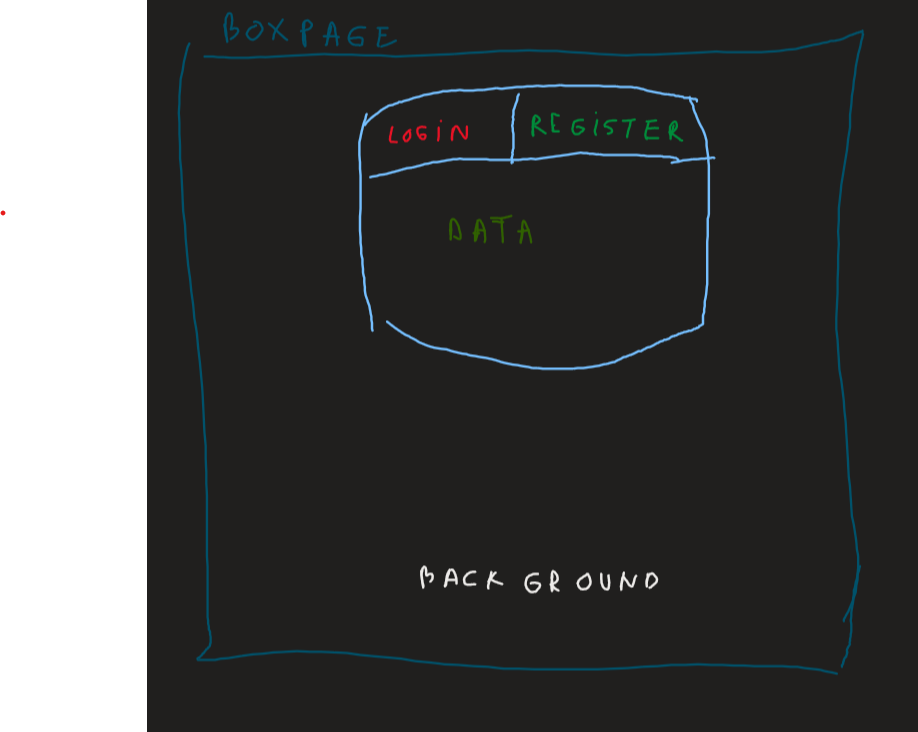 BOXPAGE
LOGIN REGISTER
DATA
BACKGROUND